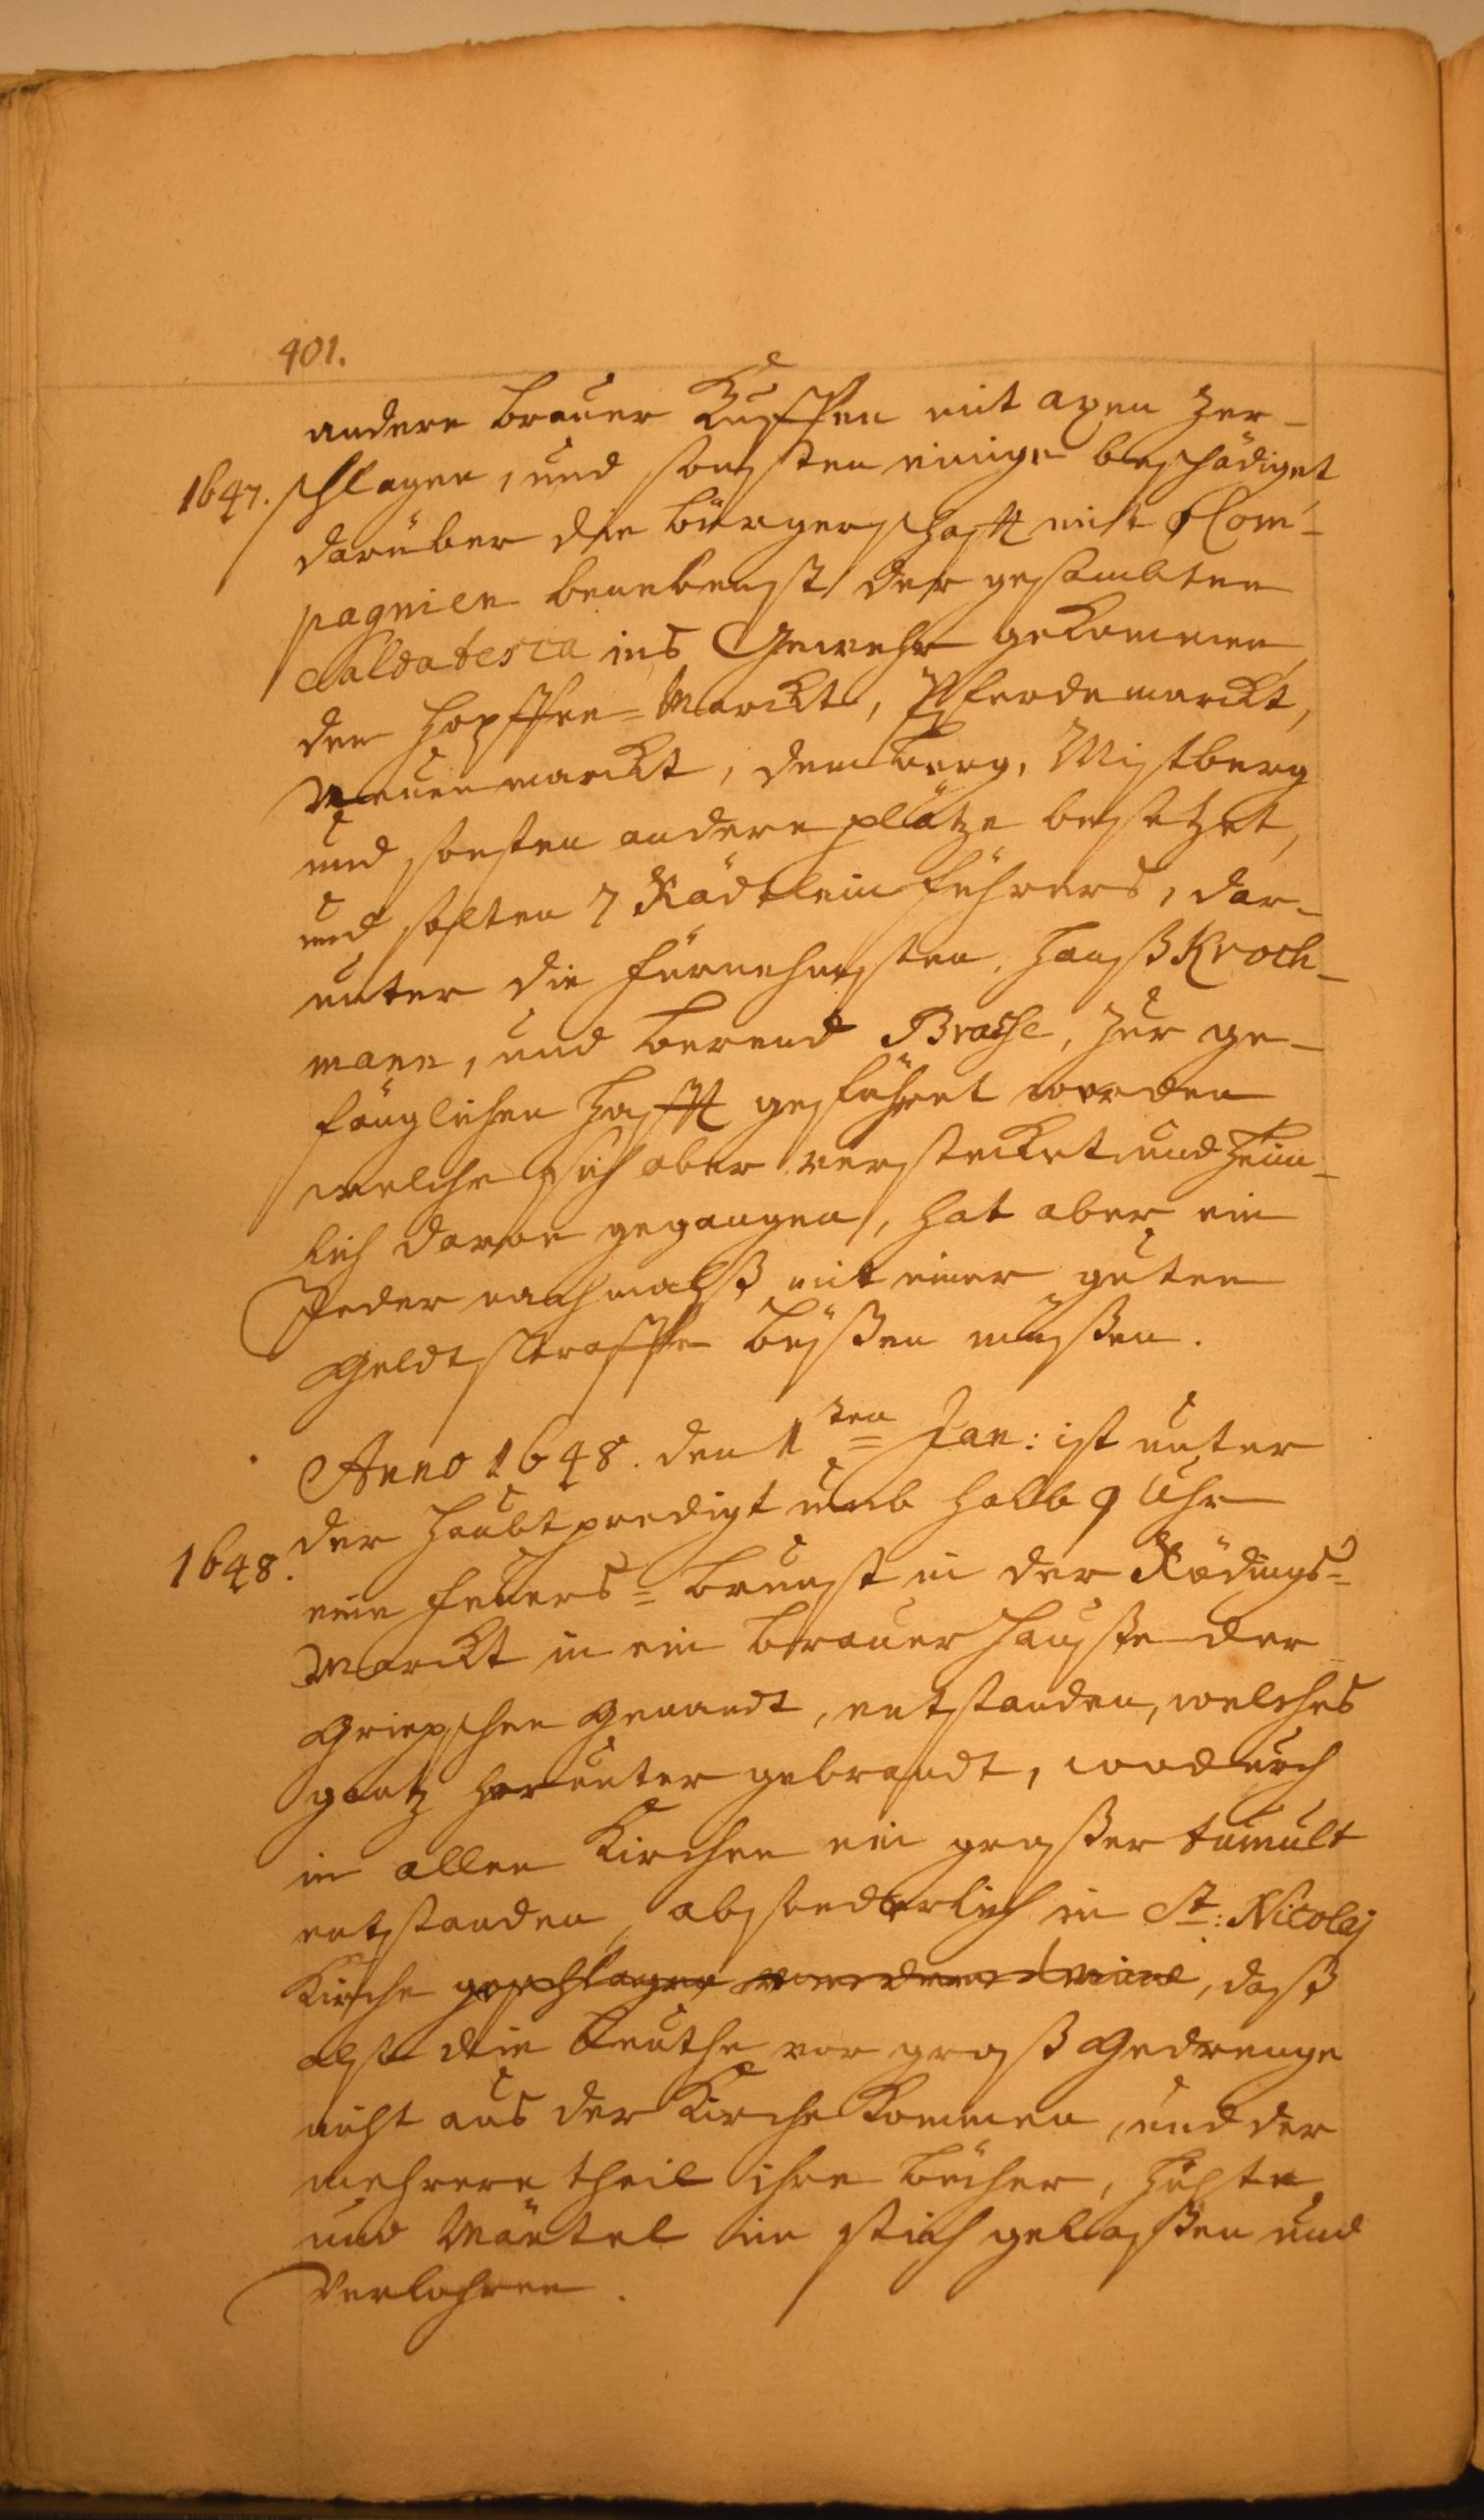 401.
andere Brauer Küffen mit axen zer-
1647. schlagen, und sonsten einige beschädiget
darüber die Bürgerschafft mit 8 Com-
pagnien benebenst der gesambten
Saldatesca ins Gewehr gekommen,
den Hopffen-Marckt, Pferdemarckt,
Neuenmarckt, dem Berg, Mistberg
und sonsten andere plätze besetzet,
und solten 7 Rädtlein führers, dar-
unter die fürnehmsten, Hanß Kroch-
mann, und Berend Brasche, zur ge-
fänglichen Hafft geführet worden
welche sich aber verstecket und heim-
lich darvon gegangen, hat aber ein
Jeder nachmalß mit einer guten
Geldtstraffe büßen müßen.
Anno 1648. den 1ten Jan: ist unter
der Haubtpredigt umb halb 9 Uhr
1648.
eine feuers-brunst in der Rödings-
Marckt in ein Brauer Hauße der
Griepschen genandt, entstanden, welches
gantz herunter gebrandt, wodurch
in allen Kirchen ein großer tumult
entstanden, absonderlich in St: Nicolaj
Kirche geschlagen worden, daß
alß die Leuthe vor groß Gedrenge
nicht aus der Kirche kommen, und der
mehrere theil ihre bücher, Hühte
und Mäntel im stich gelaßen und
verlohren.